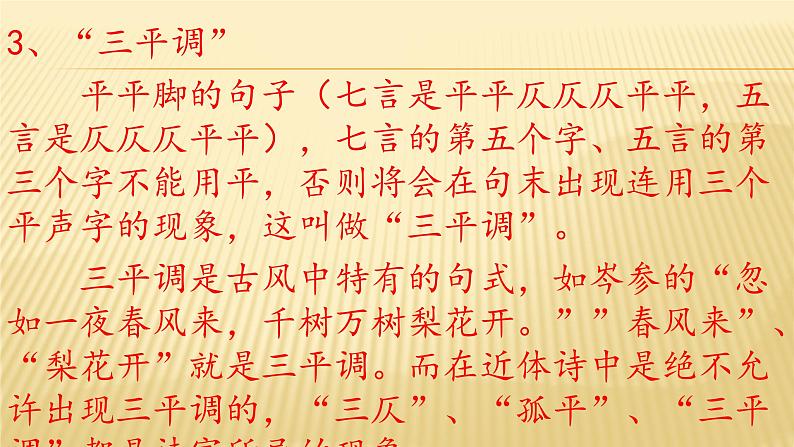 3、“三平调”
平平脚的句子（七言是平平仄仄仄平平，五
言是仄仄仄平平），七言的第五个字、五言的第
三个字不能用平，否则将会在句末出现连用三个
平声字的现象，这叫做“三平调”。
三平调是古风中特有的句式，如岑参的“忽
如一夜春风来，千树万树梨花开。””春风来”、
“梨花开”就是三平调。而在近体诗中是绝不允
许出现三平调的，“三仄”、“孤平”、“三平
调”都是诗家所忌的现象